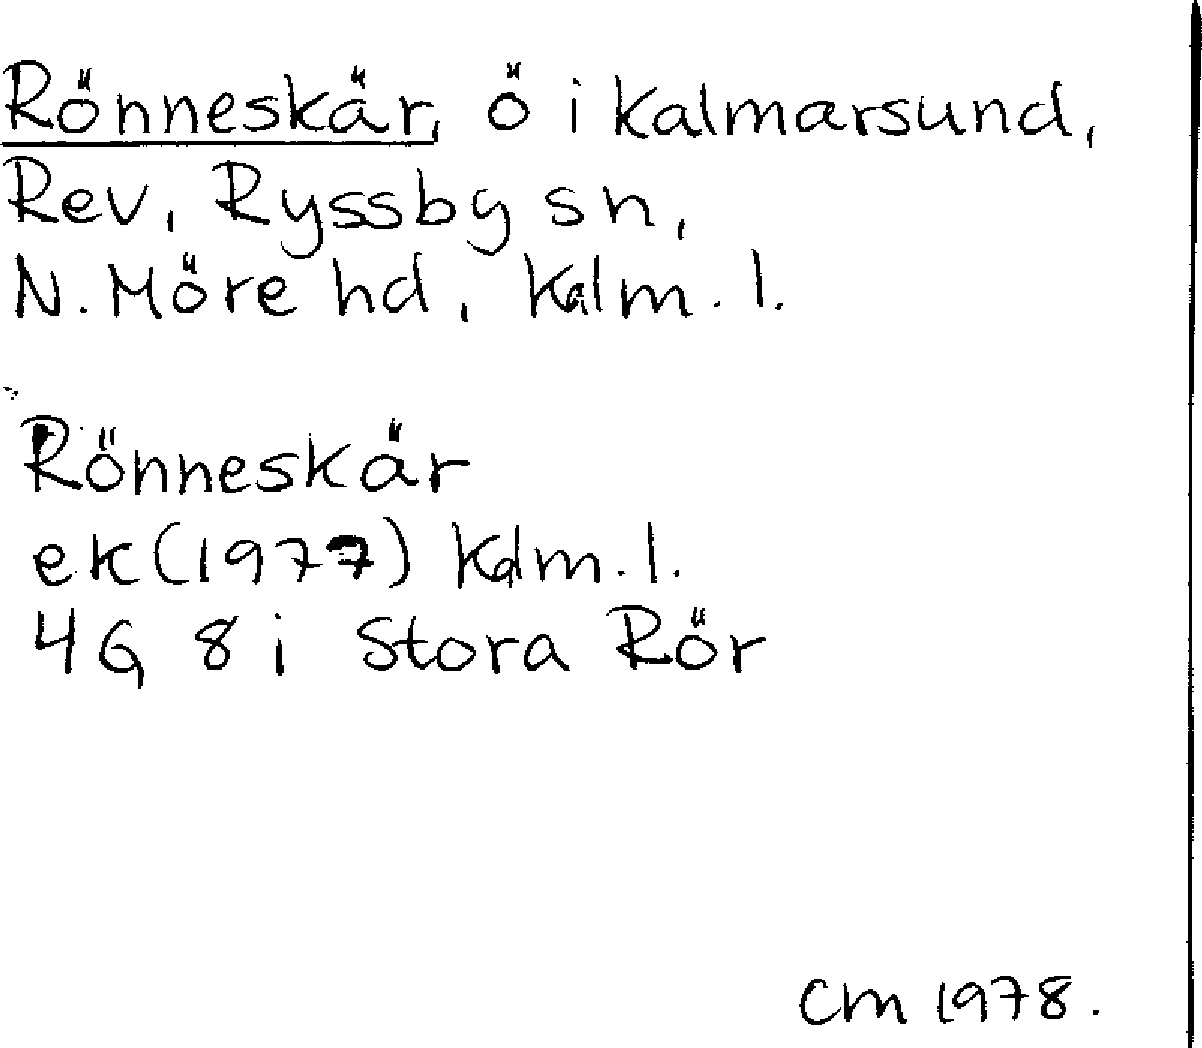 Rönneskär, ö i Kalmarsund,
Rev, Ryssby sn,
N. Möre hd, Kalm. l.
Rönneskär
ek (1977) Kalm. l.
4G 8 i Stora Rör
CM 1978.